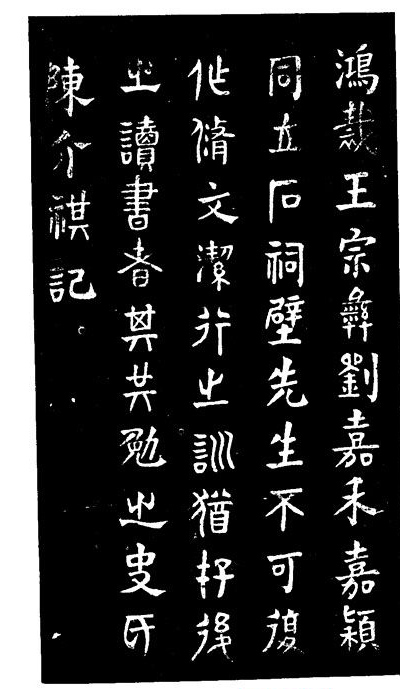 鴻裁王宗彝劉嘉禾嘉穎
同立石祠壁先生不可復
作脩文潔行之訓猶存後
之讀書者其共勉之史氏
陳介祺記